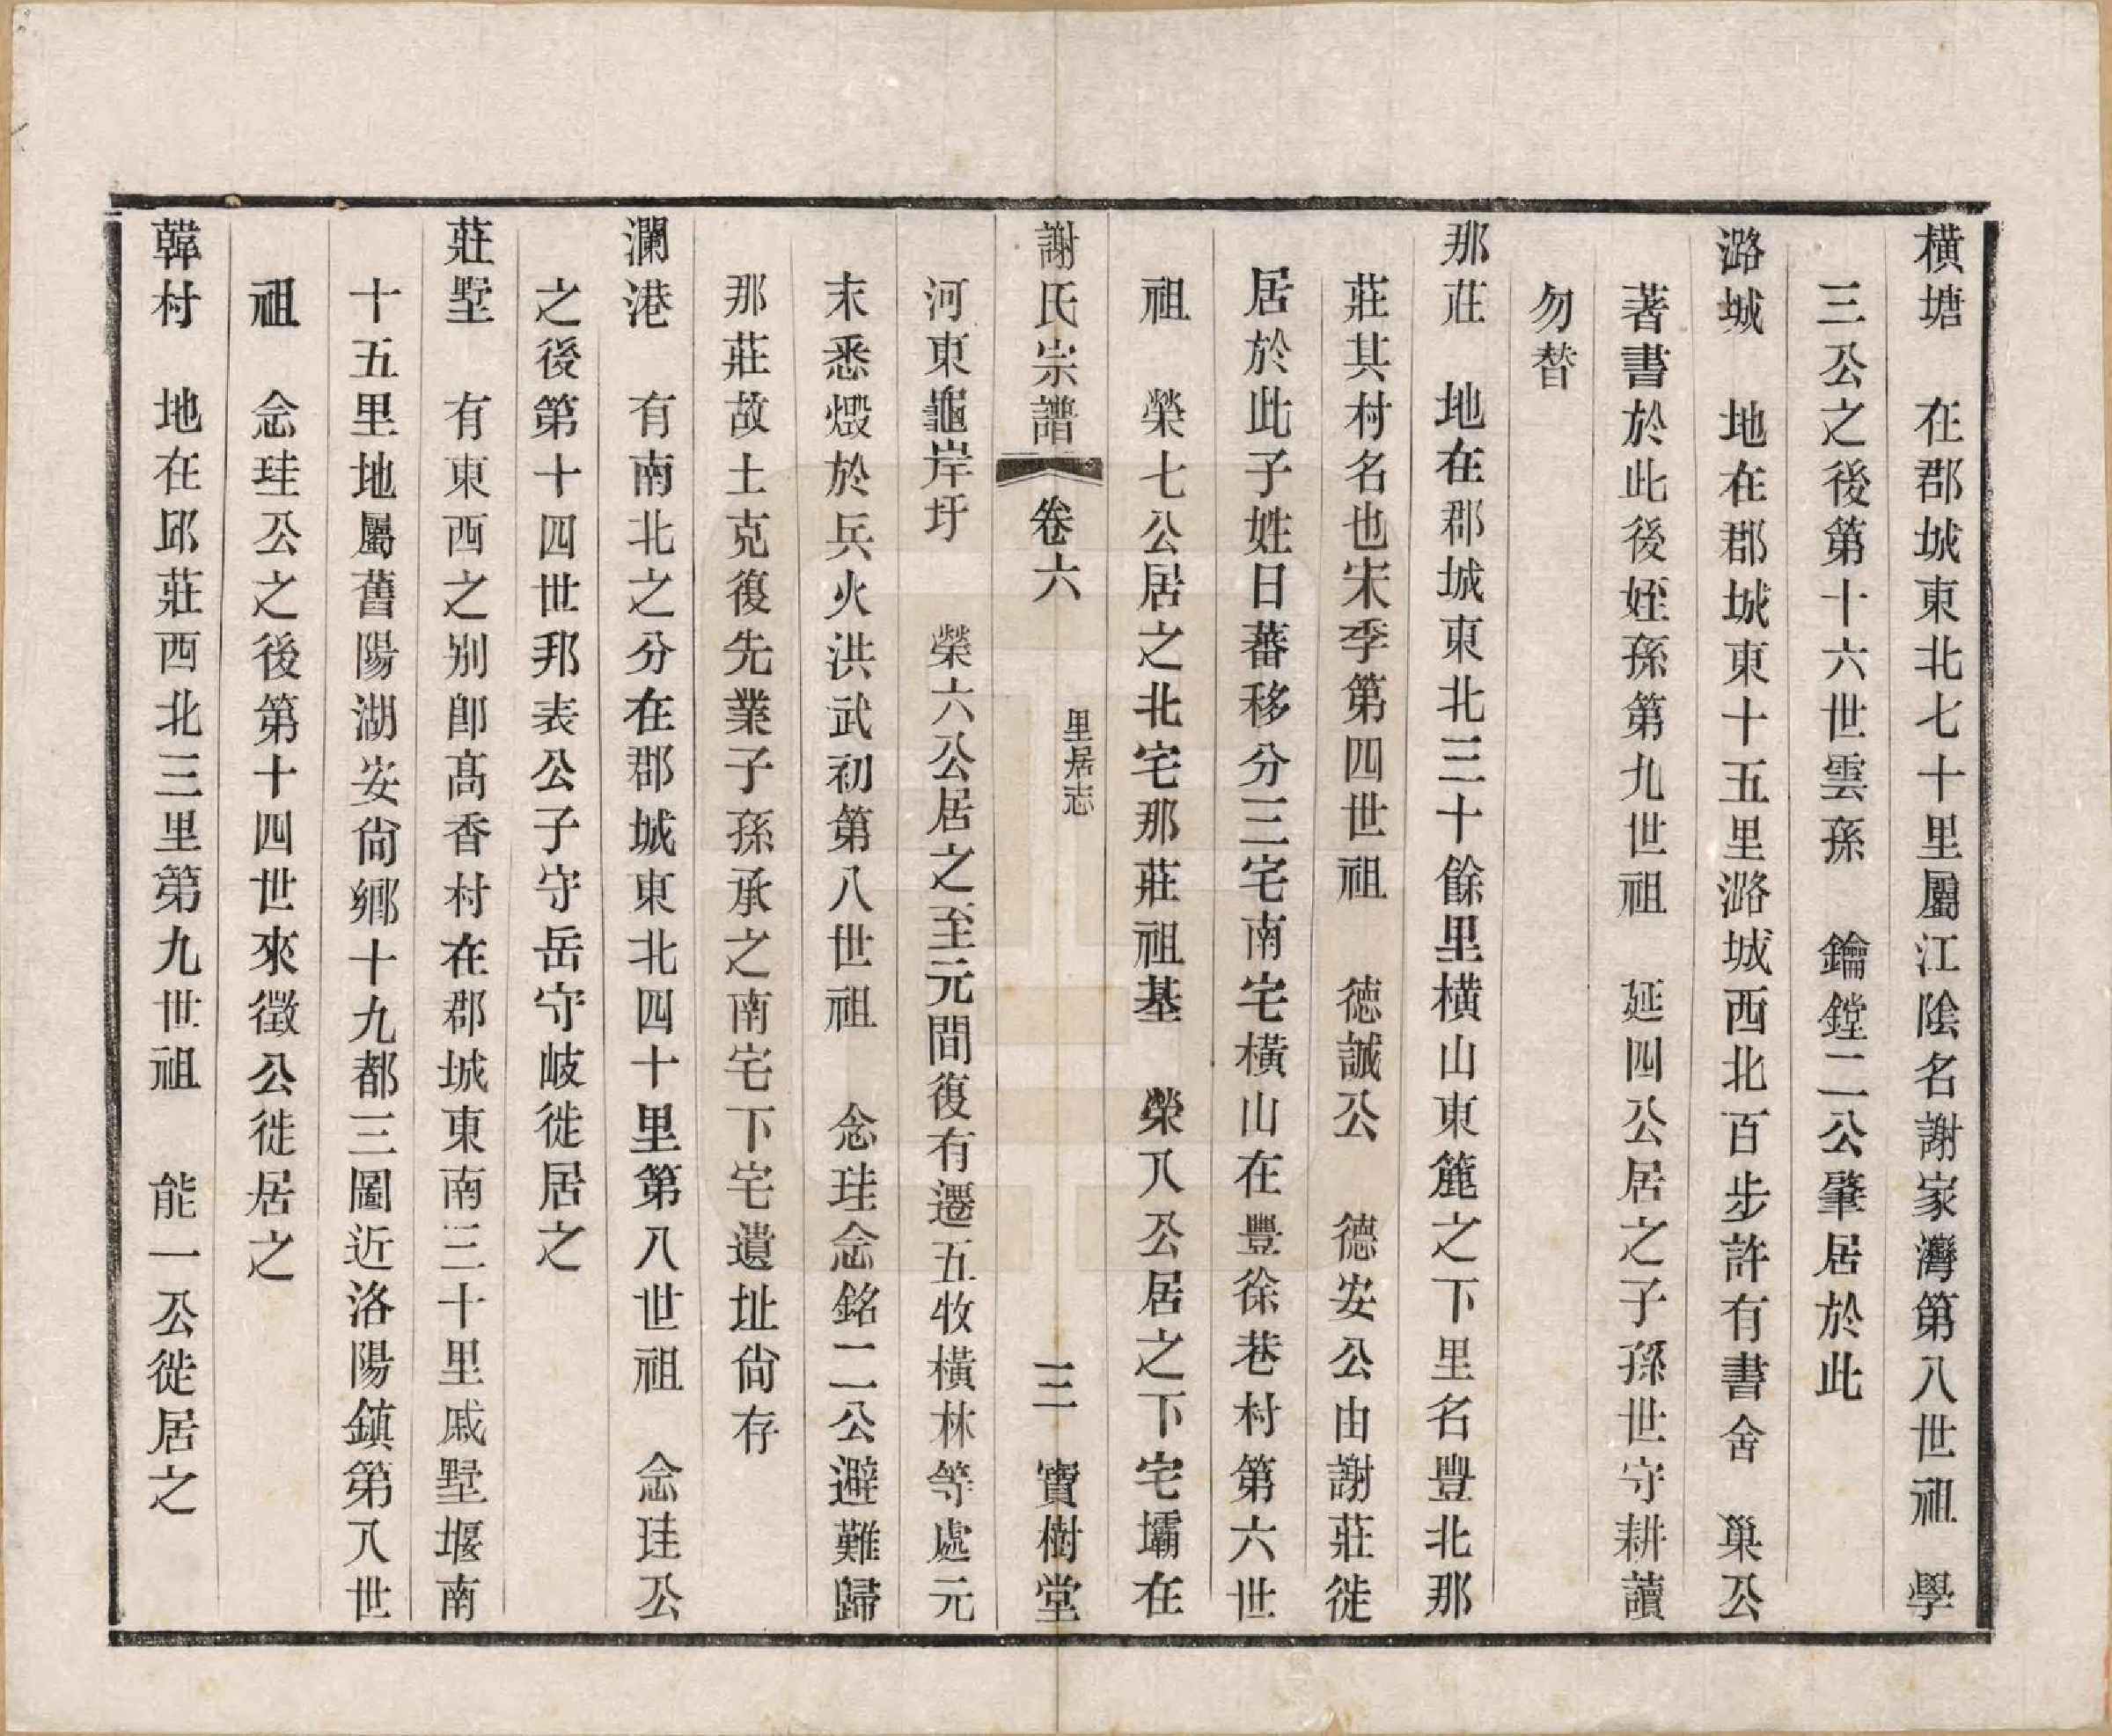 橫塘　在郡城東北七十里屬江陰名謝家灣第八世祖　學
三公之後第十六世雲孫　鑰鏜二公肇居於此
潞城　地在郡城東十五里潞城西北百步許有書舍　巢公
著書於此後姪孫第九世祖　延四公居之子孫世守耕讀
勿替
那莊　地在郡城東北三十餘里橫山東簏之下里名豐北那
莊其村名也宋季第四世祖　德誠公　德安公由謝莊徙
居於此子姓日蕃移分三宅南宅橫山在豐徐巷村第六世
祖　榮七公居之北宅那莊祖基　榮八公居之下宅壩在
謝氏宗譜　卷六　里居志　三　寶樹堂
河東龜岸圩　榮六公居之至元間復有遷五牧橫林等處元
末悉燬於兵火洪武初第八世祖　念珪念銘二公避難歸
那莊故土克復先業子孫承之南宅下宅遺址尙存
瀾港　有南北之分在郡城東北四十里第八世祖　念珪公
之後第十四世邦表公子守岳守岐徙居之
莊墅　有東西之別卽高香村在郡城東南三十里戚墅堰南
十五里地屬舊陽湖安尙鄉十九都三圖近洛陽鎮第八世
祖　念珪公之後第十四世來徵公徙居之
韓村　地在邱莊西北三里第九世祖　能一公徙居之